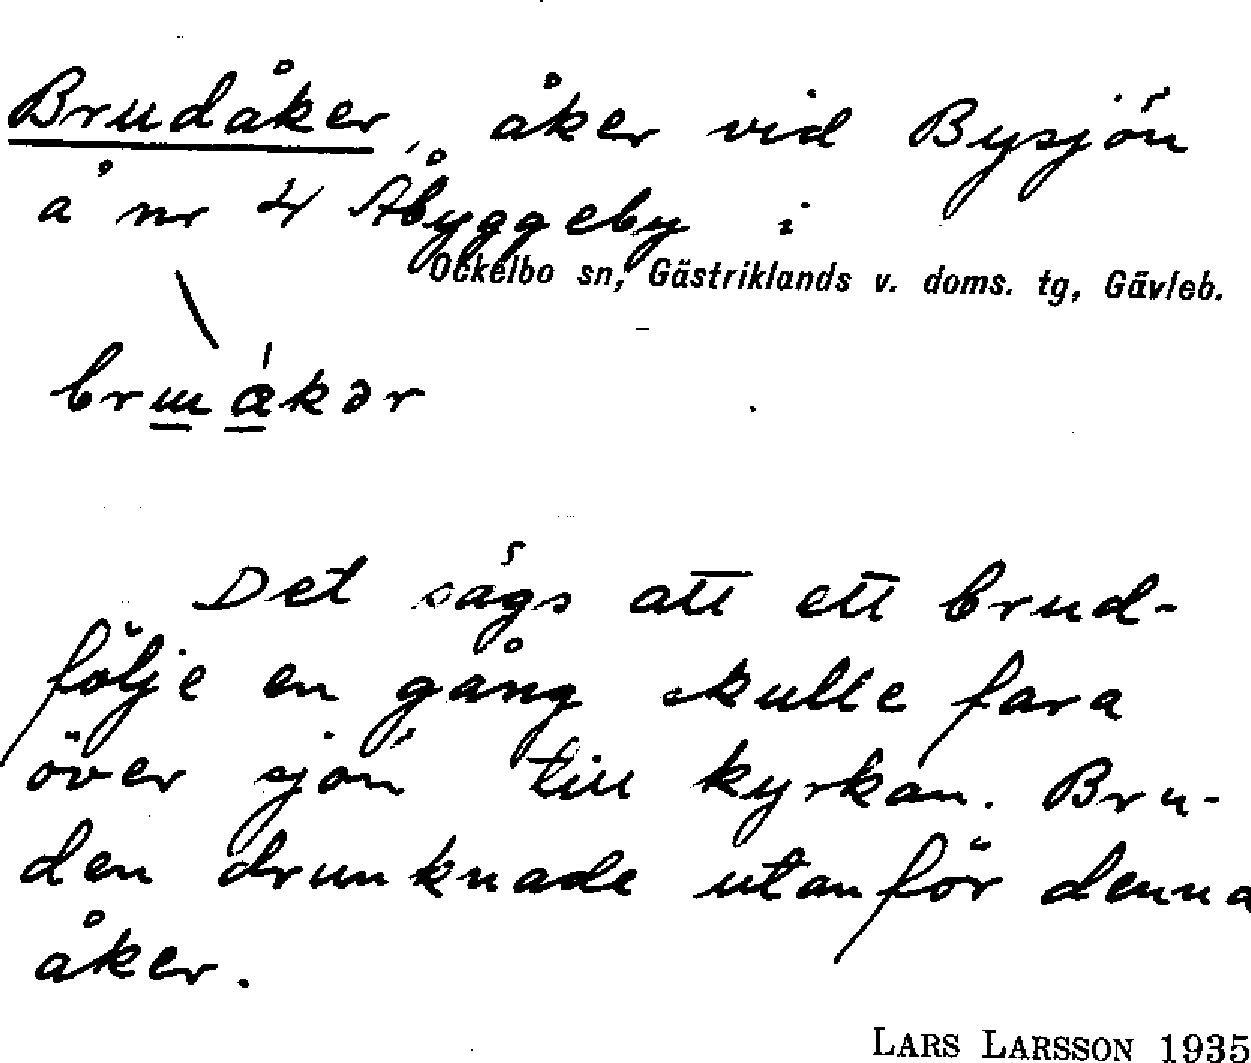 Brudåker, åker vid Bysjön
å nr 4 Åbyggeby i
Ockelbo sn, Gästriklands v. doms. tg, Gävleb.
brɯákər
Det sägs att ett brud-
följe en gång skulle fara
över sjön till kyrkan. Bru-
den drunknade utanför denna
åker.
LARS LARSSON 1935